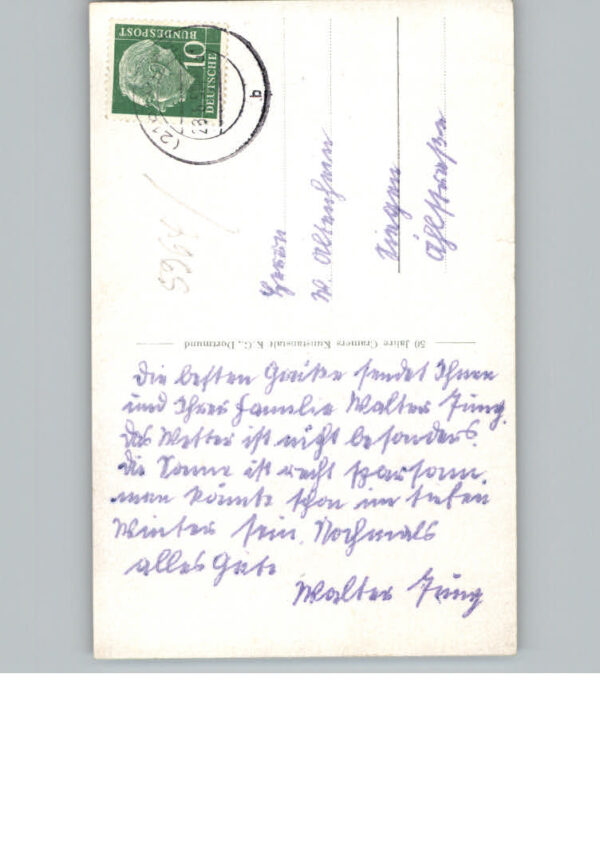 Die besten Grüße sendet Ihnen
und Ihrer Familie Walter Jung.
Das Wetter ist nicht besonders.
Die Sonne ist recht sparsam.
man könnte schon im tiefen
Winter sein. Nochmals
alles Gute
Walter Jung
Herrn
W. Altenhein
Siegen
50 Jahre Cramers Kunstanstalt K.G., Dortmund
DEUTSCHE
BUNDESPOST
10
(21
b